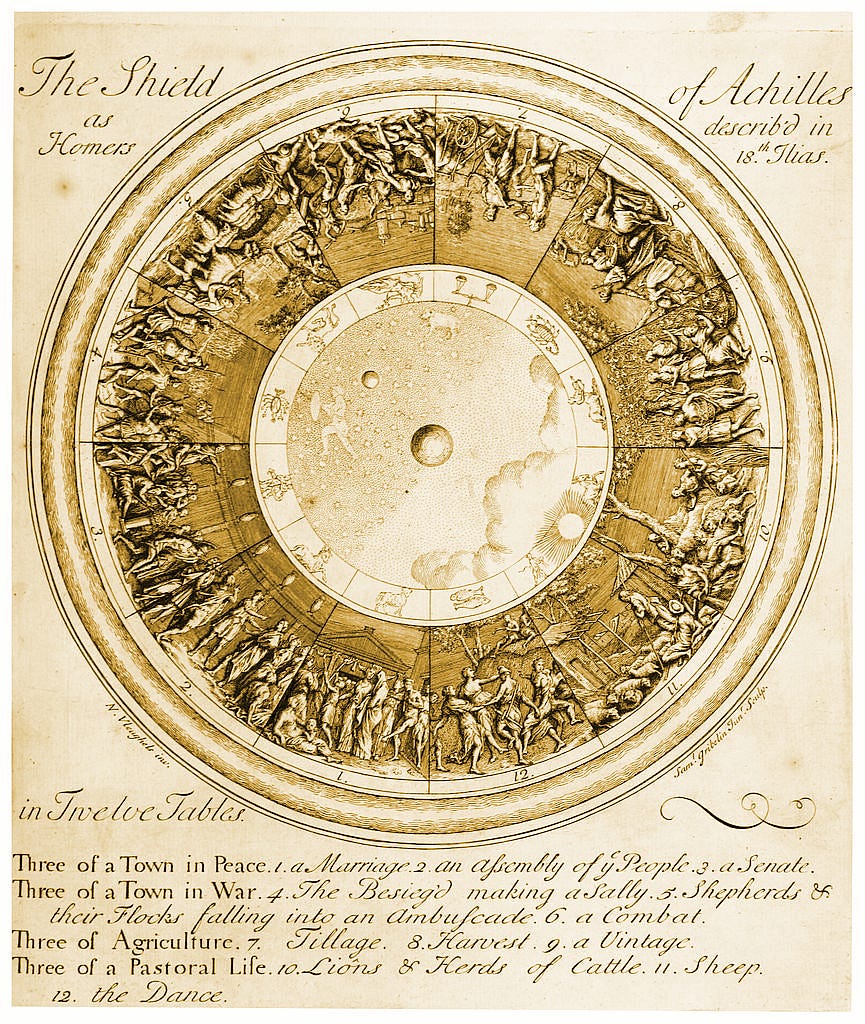 The Shield of Achilles
as describ'd in
Homers 18.th Ilias.
6. 7.
5. 8.
4. 9.
3. 10.
2. 11.
1. 12.
N. Vleughels inv.
Sam.l Gribelin Jun.r Sculp.
in Twelve Tables.
Three of a Town in Peace. 1. a Marriage. 2. an aſsembly of yͤ People. 3. a Senate.
Three of a Town in War. 4. The Besieg'd making a Sally. 5. Shepherds &
their Flocks falling into an Ambuſcade. 6. a Combat.
Three of Agriculture. 7. Tillage. 8. Harvest. 9. a Vintage.
Three of a Pastoral Life. 10. Lions & Herds of Cattle. 11. Sheep.
12. the Dance.